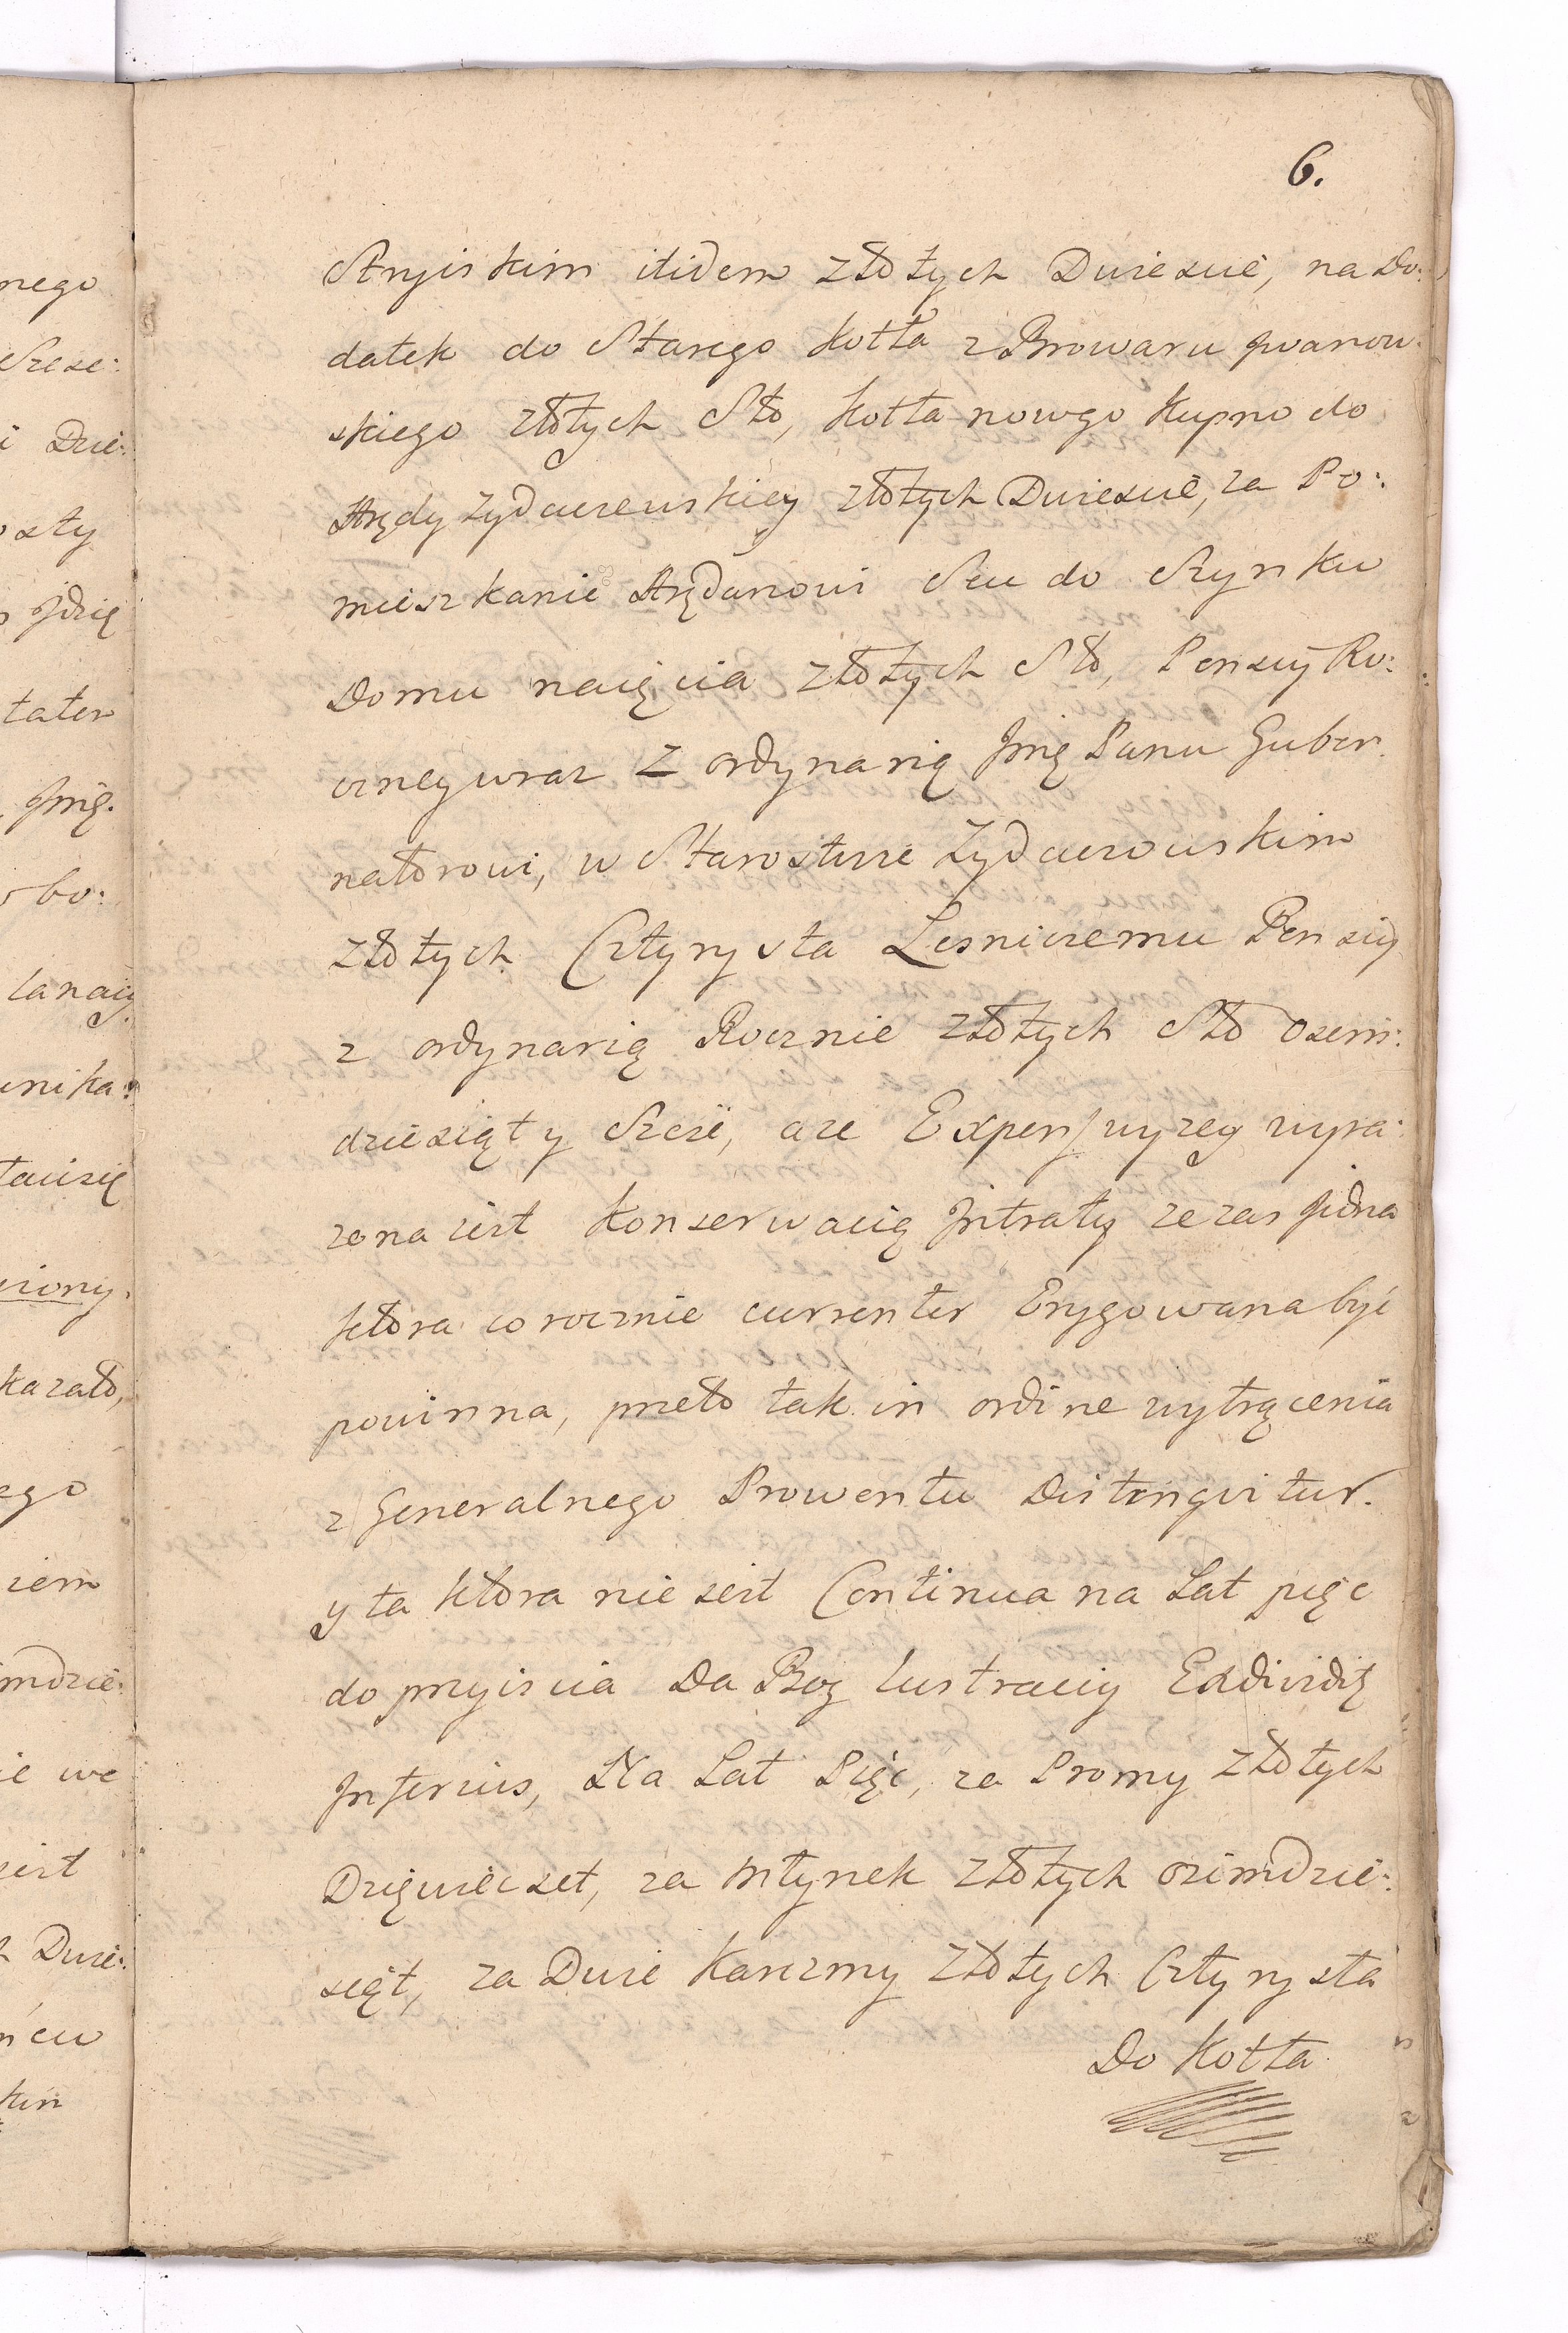 6.
Stryiskim itidem złotych Dwiescie, na Do:
datek do Starego Kotła z Browaru Jwanow:
skiego złotych Sto, Kotła nowgo Kupno do
Arędy Zydaczewskiey złotych Dwiescie, za Po:
mieszkanie Arędarowi Seu do Szynku
Domu naięcia złotych Sto, Pensyi Ro:
czney wraz z ordynarią Jmę Panu Guber:
natorowi, w Starostwie Zydaczowskim
złotych Cztyrysta Lesniczemu Pensiy
z ordynarią Rocznie złotych Sto osem:
dziesiąt y Szesc, aze Expens wyzey wyra:
zona iest Konserwacią Jntraty zezas Jedna
ktora corocznie currenter Erygowana być
powinna, przeto tak in ordine wytrącenia
z Generalnego Prowentu Distingvitur.
y ta ktora nie iest Continua na Lat pięc
do przyiscia Da Bog lustraciy Exdividię
Jnferius, Na Lat Pięć, za Promy złotych
Dziewięcset, za młynek złotych osimdzie:
sięt, za Dwie Karczmy złotych Cztyrysta
Do Kotła
nego
Szesc:
i Dzie:
Jdzię
Jmę.
bo:
kazało,
ego
iem
imdzie:
ie we
iest
Dwie: